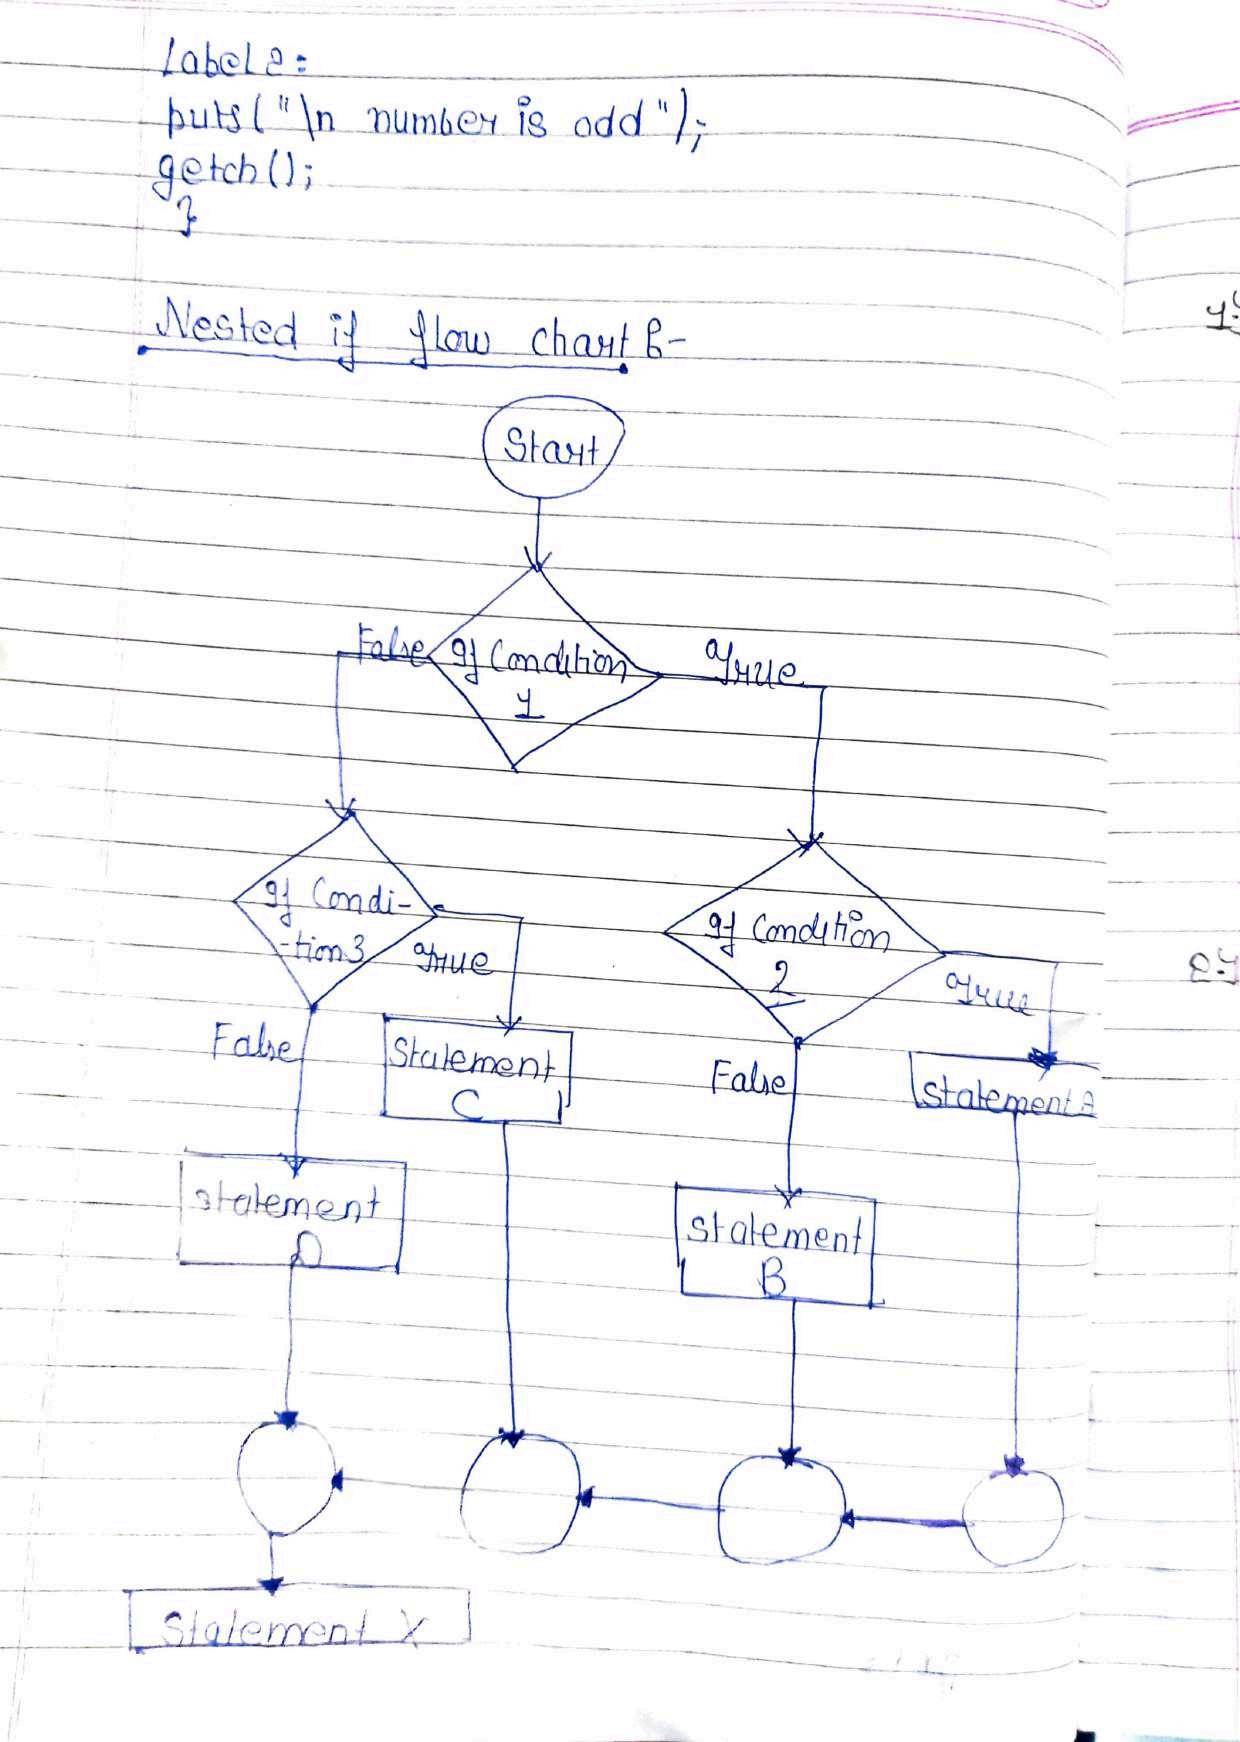 Label2:
puts("\n number is odd");
getch();
}
Nested if flow chart:-
Start
False
If Condition
1
True
If Condi-
-tion3
True
If Condition
2
True
False
Statement
C
False
Statement A
Statement
D
Statement
B
Statement X